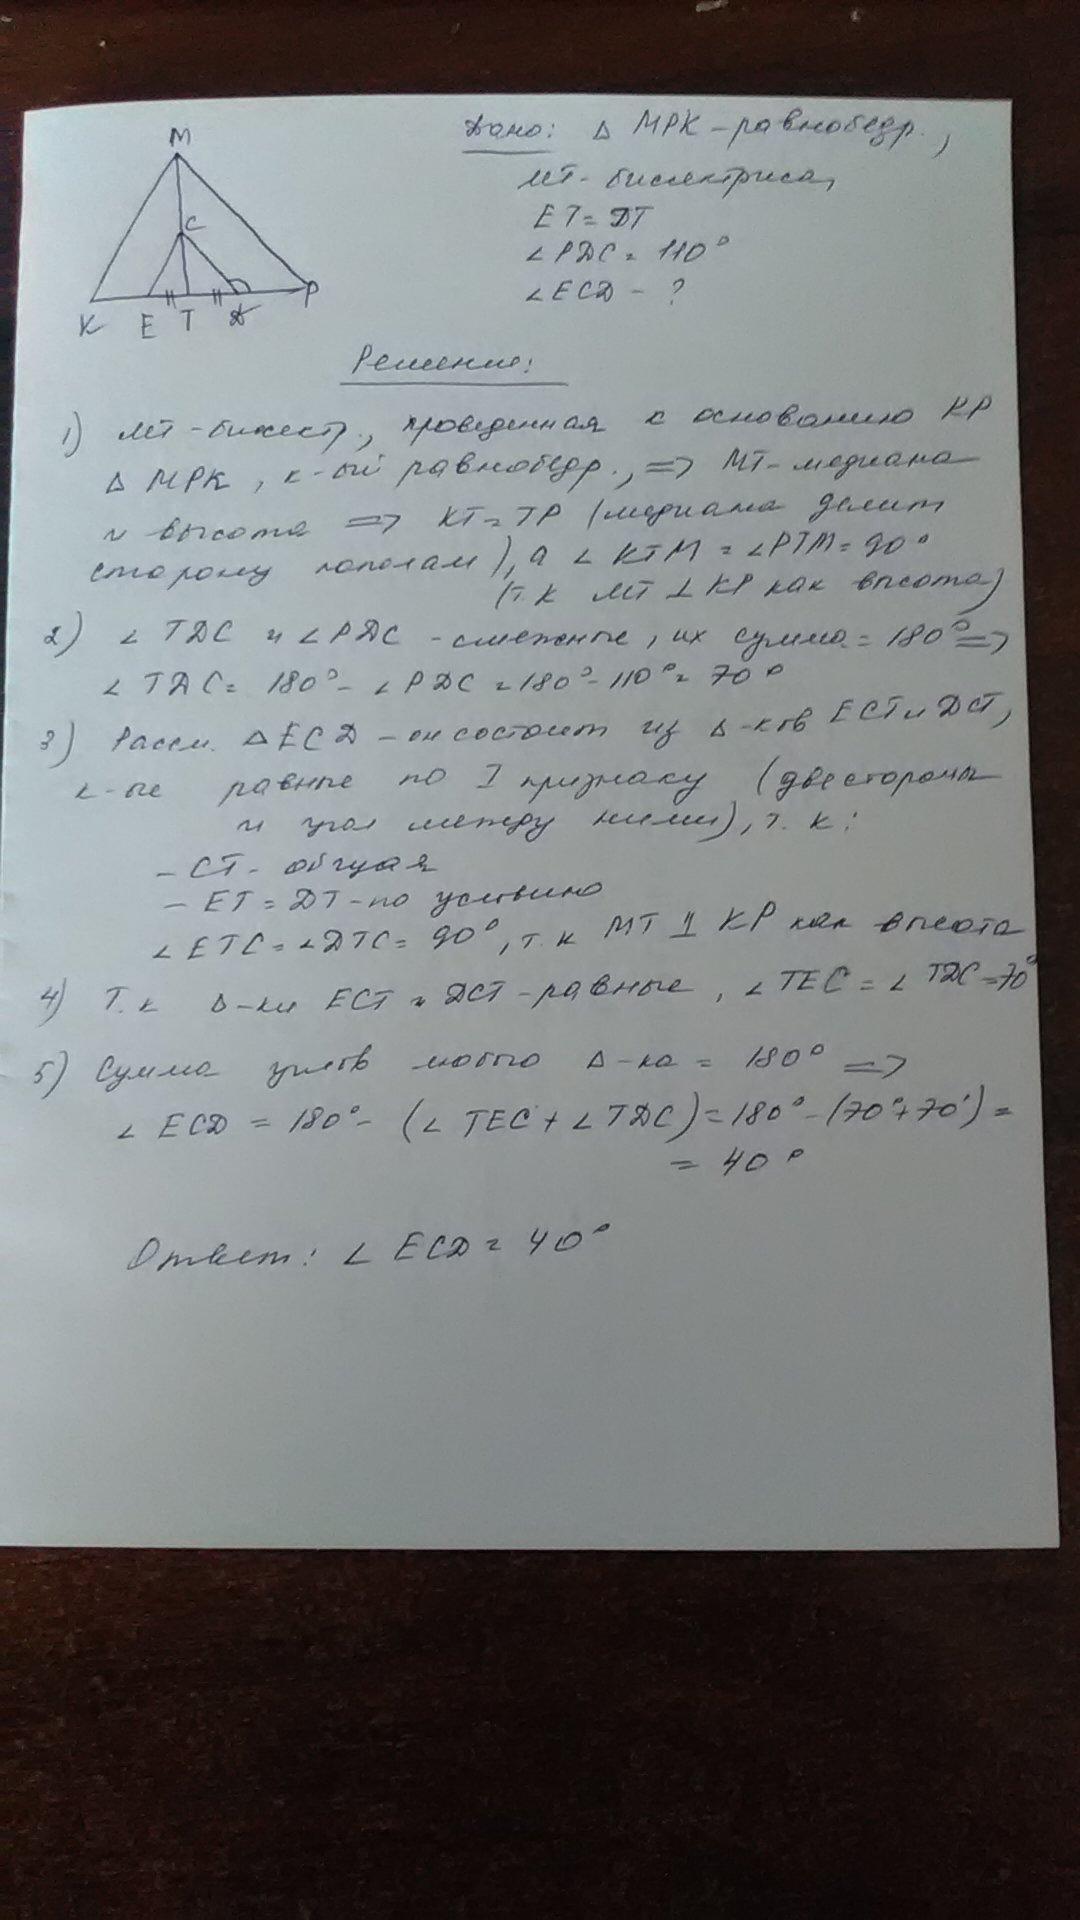 M
C
K E T D P
Дано: Δ MPK - равнобедр.,
MT - биссектриса,
ET = DT
∠PDC = 110°
∠ECD - ?
Решение:
1) MT - биссект., проведенная к основанию KP
Δ MPK, к-ый равнобедр., => MT - медиана
и высота => KT = TP (медиана делит
сторону пополам), а ∠KTM = ∠PTM = 90°
(т.к MT ⊥ KP как высота)
2) ∠TDC и ∠PDC - смежные, их сумма = 180° =>
∠TDC = 180° - ∠PDC = 180° - 110° = 70°
3) Рассм. ΔECD - он состоит из Δ-ков ECT и DCT,
к-ые равные по I признаку (две стороны
и угол между ними), т. к:
- CT - общая
- ET = DT - по условию
∠ETC = ∠DTC = 90°, т.к MT ⊥ KP как высота
4) Т.к Δ-ки ECT и DCT - равные, ∠TEC = ∠TDC = 70°
5) Сумма углов любого Δ-ка = 180° =>
∠ECD = 180° - (∠TEC + ∠TDC) = 180° - (70° + 70°) =
= 40°
Ответ: ∠ECD = 40°